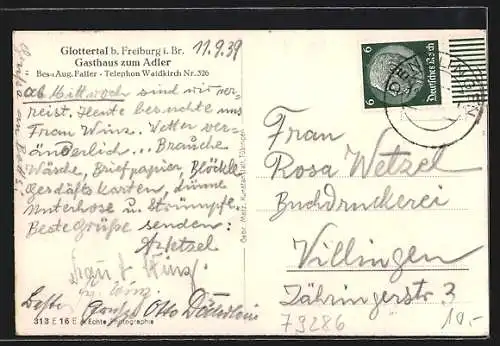 Glottertal b. Freiburg i. Br.
Gasthaus zum Adler
Bes. Aug. Faller - Telephon Waldkirch Nr. 326
11.9.39
ab Mittwoch sind wir ver-
reist. Heute besuchte uns
Frau Winz. Wetter ver-
änderlich... Brauche
Wäsche, Briefpapier, Blöckle
Geschäftskarten, dünne
Unterhose u. Strümpfe.
Beste Grüße senden:
Gebr. Metz, Kunstanstalt, Tübingen
Frau
Winz.
Beste Grüße Otto
313 E 16 E Echte Photographie
6
Deutsches Reich
6
Frau
Rosa Wetzel
Buchdruckerei
Villingen
Zähringerstr. 3
79286
10.-